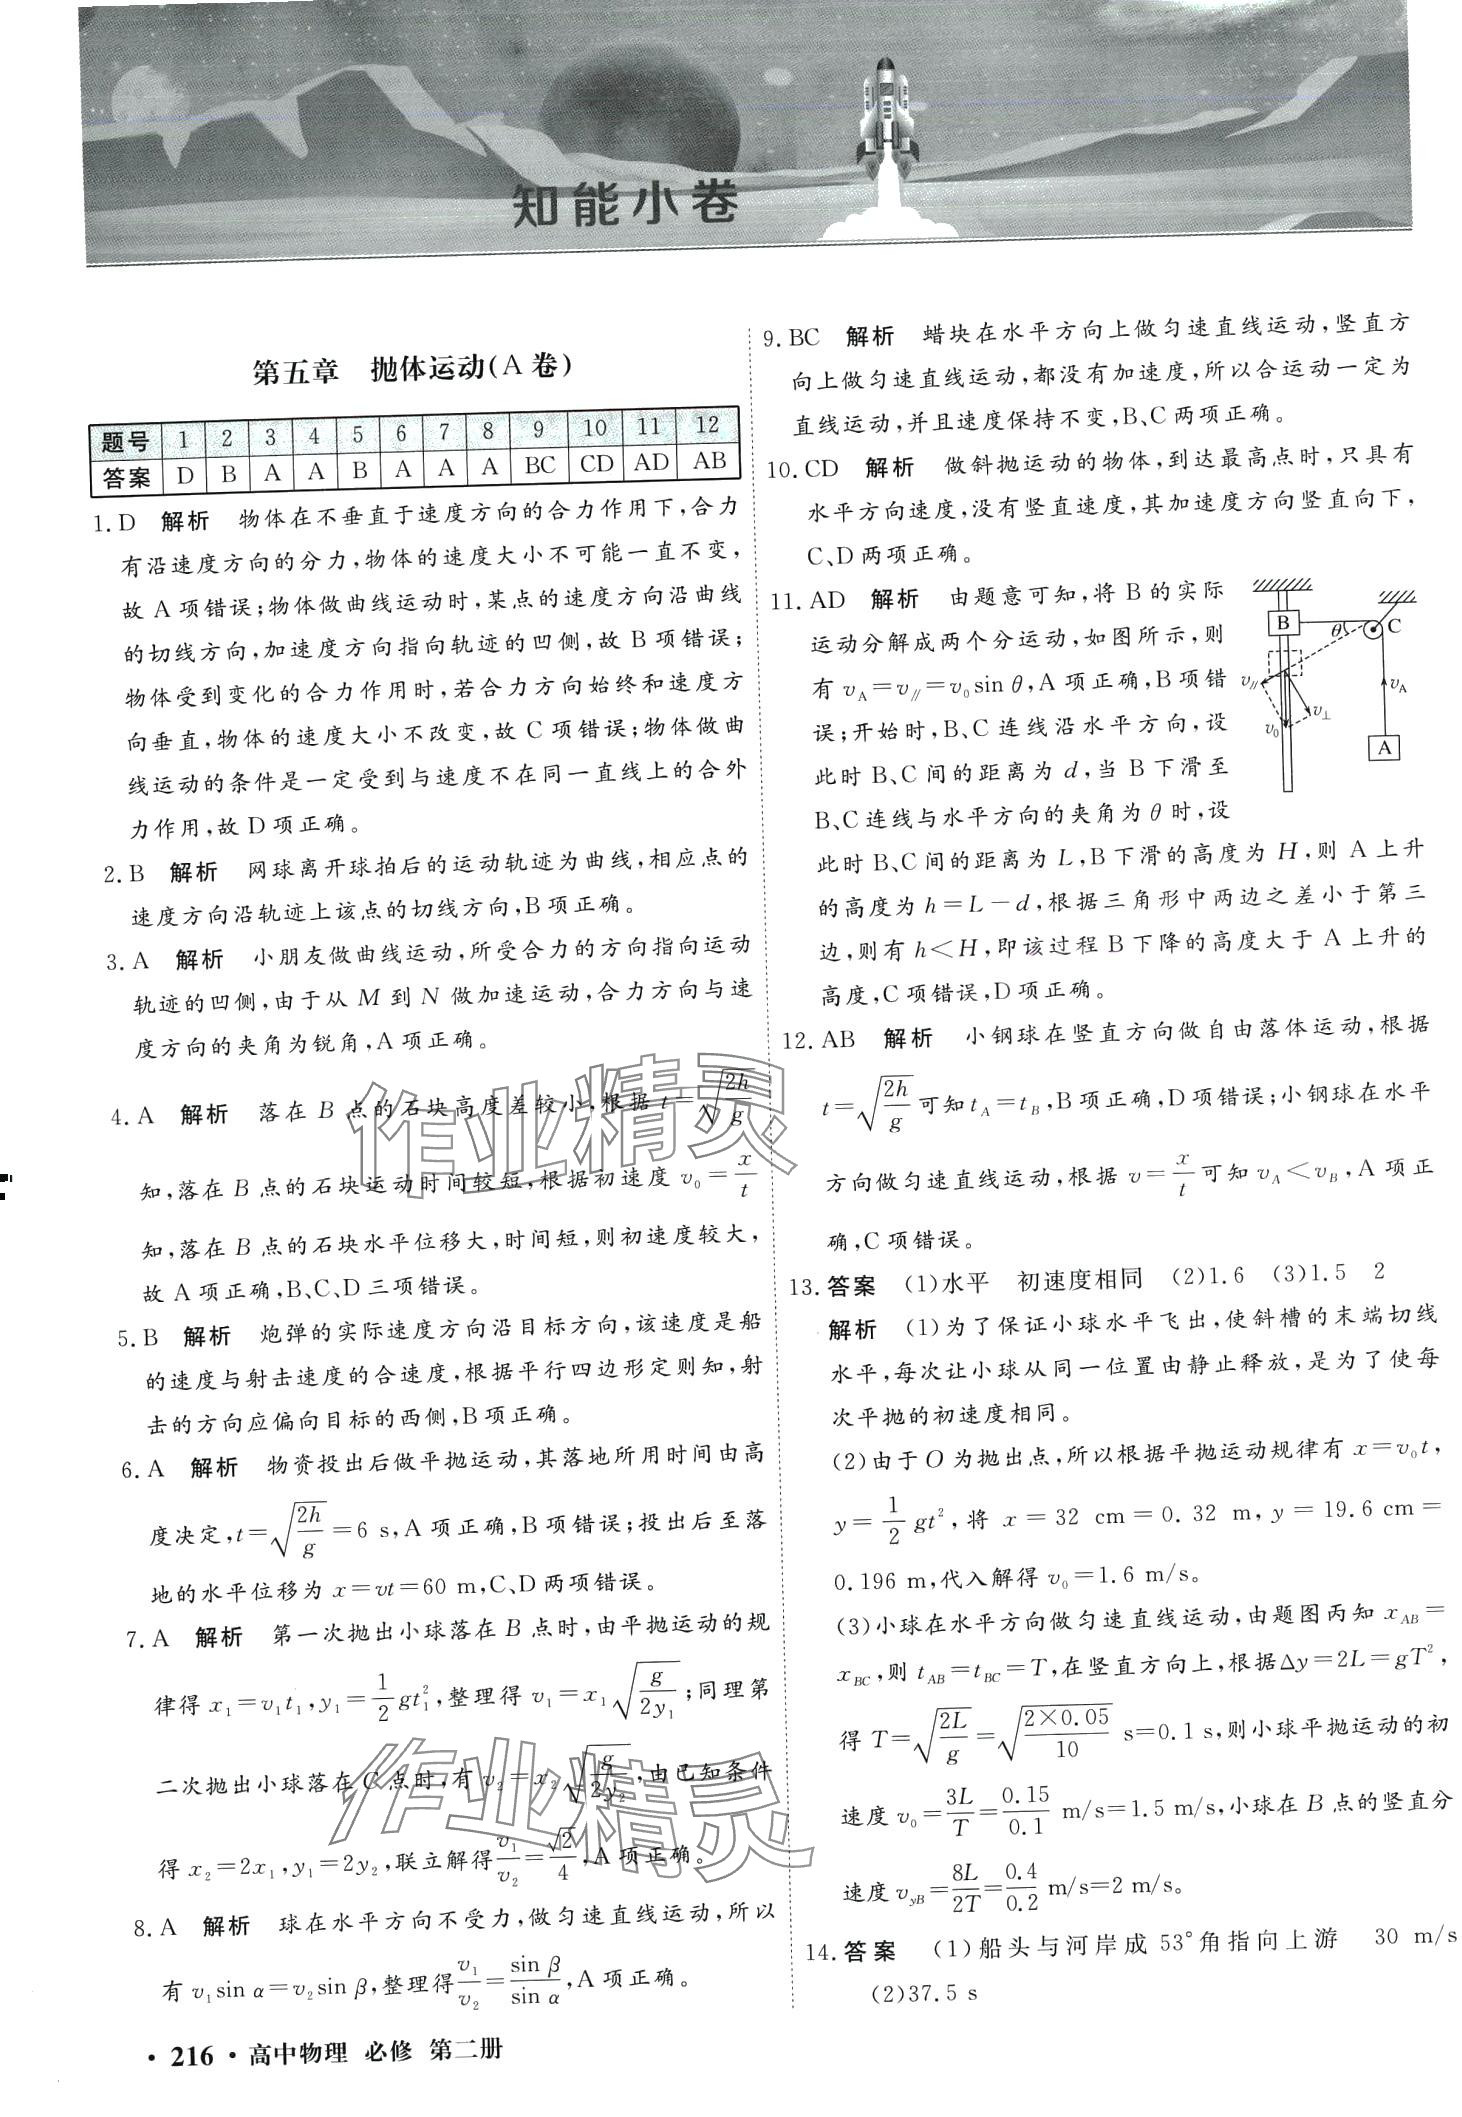 知能小卷
第五章　抛体运动(A 卷)
题号 1 2 3 4 5 6 7 8 9 10 11 12
答案 D B A A B A A A BC CD AD AB
1. D　解析　物体在不垂直于速度方向的合力作用下,合力
有沿速度方向的分力,物体的速度大小不可能一直不变,
故 A 项错误;物体做曲线运动时,某点的速度方向沿曲线
的切线方向,加速度方向指向轨迹的凹侧,故 B 项错误;
物体受到变化的合力作用时,若合力方向始终和速度方
向垂直,物体的速度大小不改变,故 C 项错误;物体做曲
线运动的条件是一定受到与速度不在同一直线上的合外
力作用,故 D 项正确。
2. B　解析　网球离开球拍后的运动轨迹为曲线,相应点的
速度方向沿轨迹上该点的切线方向,B 项正确。
3. A　解析　小朋友做曲线运动,所受合力的方向指向运动
轨迹的凹侧,由于从 M 到 N 做加速运动,合力方向与速
度方向的夹角为锐角,A 项正确。
4. A　解析　落在 B 点的石块高度差较小,根据 t=√(2h/g)
知,落在 B 点的石块运动时间较短,根据初速度 v₀=x/t
知,落在 B 点的石块水平位移大,时间短,则初速度较大,
故 A 项正确,B、C、D 三项错误。
5. B　解析　炮弹的实际速度方向沿目标方向,该速度是船
的速度与射击速度的合速度,根据平行四边形定则知,射
击的方向应偏向目标的西侧,B 项正确。
6. A　解析　物资投出后做平抛运动,其落地所用时间由高
度决定,t=√(2h/g)=6 s,A 项正确,B 项错误;投出后至落
地的水平位移为 x=vt=60 m,C、D 两项错误。
7. A　解析　第一次抛出小球落在 B 点时,由平抛运动的规
律得 x₁=v₁t₁,y₁=1/2 gt₁²,整理得 v₁=x₁√(g/2y₁);同理第
二次抛出小球落在 C 点时,有 v₂=x₂√(g/2y₂),由已知条件
得 x₂=2x₁,y₁=2y₂,联立解得v₁/v₂=√2/4,A 项正确。
8. A　解析　球在水平方向不受力,做匀速直线运动,所以
有 v₁sin α=v₂sin β,整理得v₁/v₂=sin β/sin α,A 项正确。
9. BC　解析　蜡块在水平方向上做匀速直线运动,竖直方
向上做匀速直线运动,都没有加速度,所以合运动一定为
直线运动,并且速度保持不变,B、C 两项正确。
10. CD　解析　做斜抛运动的物体,到达最高点时,只具有
水平方向速度,没有竖直速度,其加速度方向竖直向下,
C、D 两项正确。
11. AD　解析　由题意可知,将 B 的实际
运动分解成两个分运动,如图所示,则
有 v_A=v_∥=v₀sin θ,A 项正确,B 项错
误;开始时,B、C 连线沿水平方向,设
此时 B、C 间的距离为 d,当 B 下滑至
B、C 连线与水平方向的夹角为 θ 时,设
此时 B、C 间的距离为 L,B 下滑的高度为 H,则 A 上升
的高度为 h=L-d,根据三角形中两边之差小于第三
边,则有 h<H,即该过程 B 下降的高度大于 A 上升的
高度,C 项错误,D 项正确。
B
θ
C
v_∥
v_⊥
v₀
v_A
A
12. AB　解析　小钢球在竖直方向做自由落体运动,根据
t=√(2h/g)可知 t_A=t_B,B 项正确,D 项错误;小钢球在水平
方向做匀速直线运动,根据 v=x/t可知 v_A<v_B,A 项正
确,C 项错误。
13. 答案　(1)水平　初速度相同　(2)1.6　(3)1.5　2
解析　(1)为了保证小球水平飞出,使斜槽的末端切线
水平,每次让小球从同一位置由静止释放,是为了使每
次平抛的初速度相同。
(2)由于 O 为抛出点,所以根据平抛运动规律有 x=v₀t,
y=1/2 gt²,将 x=32 cm=0.32 m,y=19.6 cm=
0.196 m,代入解得 v₀=1.6 m/s。
(3)小球在水平方向做匀速直线运动,由题图丙知 x_AB=
x_BC,则 t_AB=t_BC=T,在竖直方向上,根据Δy=2L=gT²,
得 T=√(2L/g)=√(2×0.05/10) s=0.1 s,则小球平抛运动的初
速度 v₀=3L/T=0.15/0.1 m/s=1.5 m/s,小球在 B 点的竖直分
速度 v_yB=8L/2T=0.4/0.2 m/s=2 m/s。
14. 答案　(1)船头与河岸成 53°角指向上游　30 m/s
(2)37.5 s
作业精灵
作业精灵
· 216 · 高中物理　必修　第二册